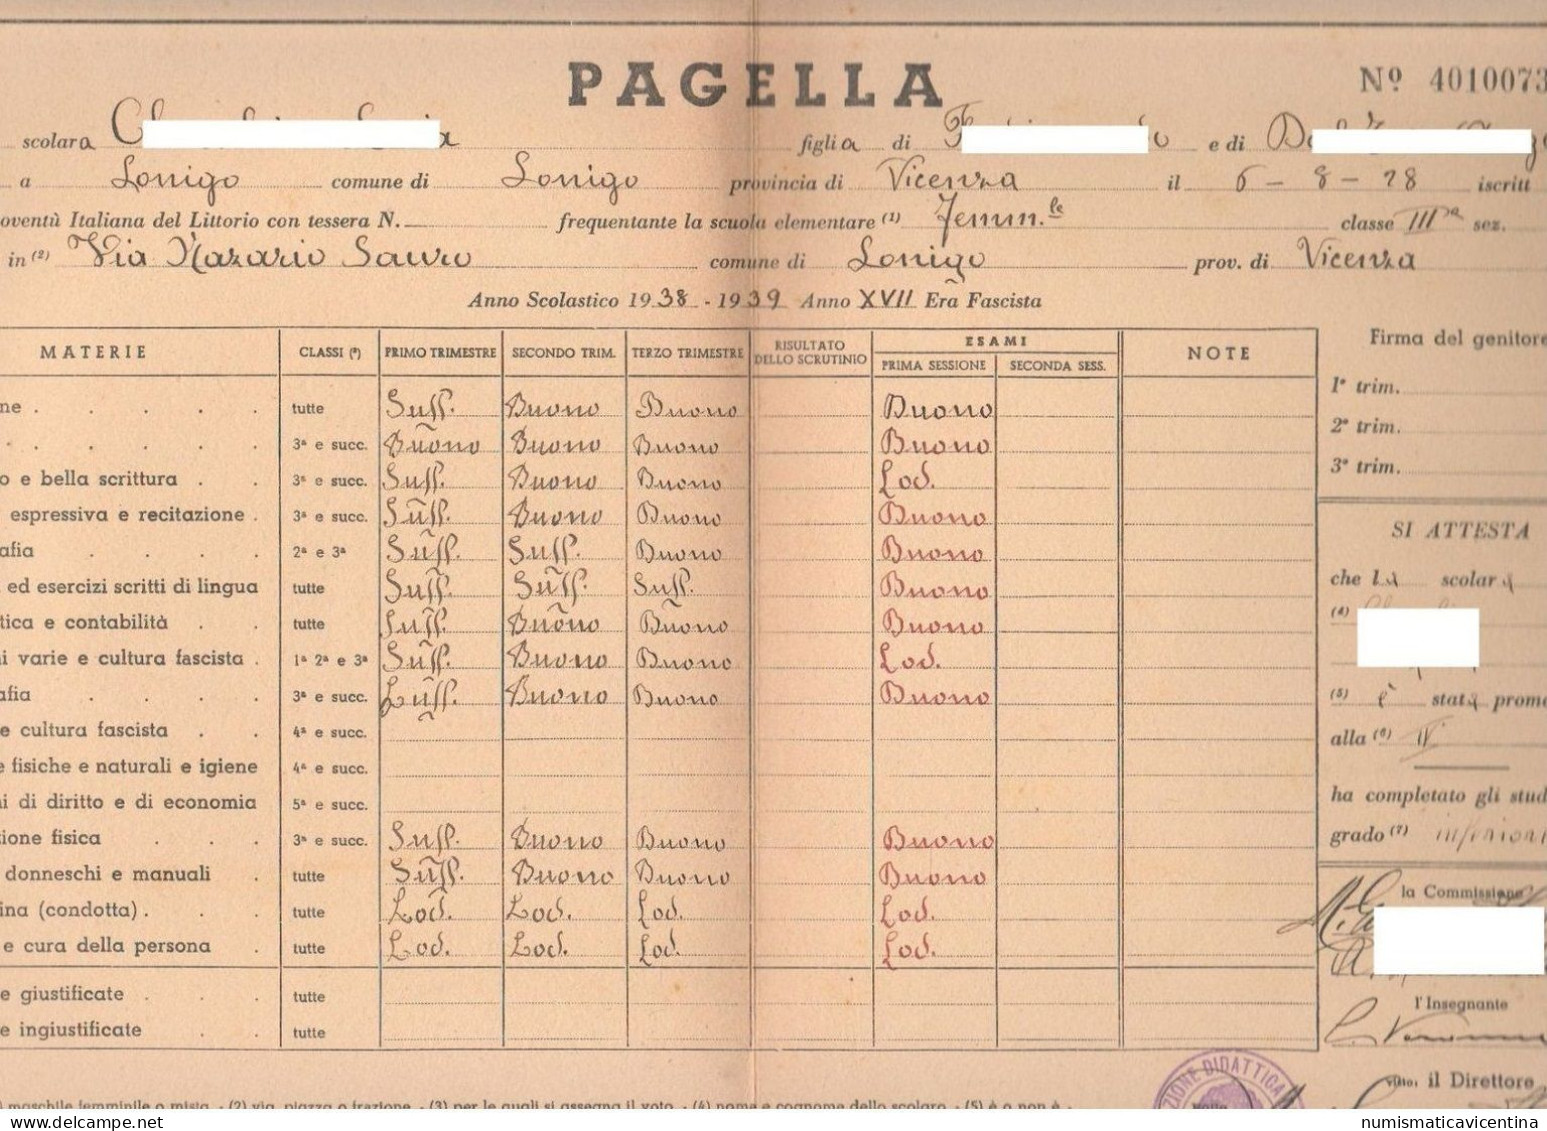 PAGELLA
Nº 4010073
scolara figlia di e di
a Lonigo comune di Lonigo provincia di Vicenza il 6 - 8 - 28 iscritt
oventù Italiana del Littorio con tessera N. frequentante la scuola elementare (1) Femm.le classe IIIa sez.
in (2) Via Nazario Sauro comune di Lonigo prov. di Vicenza
Anno Scolastico 1938 - 1939 Anno XVII Era Fascista
MATERIE CLASSI (*) PRIMO TRIMESTRE SECONDO TRIM. TERZO TRIMESTRE RISULTATO DELLO SCRUTINIO ESAMI PRIMA SESSIONE SECONDA SESS. NOTE
ne . . . . . tutte Suff. Buono Buono Buono
. . . . . 3ª e succ. Buono Buono Buono Buono
o e bella scrittura . . 3ª e succ. Suff. Buono Buono Lod.
espressiva e recitazione . 3ª e succ. Suff. Buono Buono Buono
afia . . . . 2ª e 3ª Suff. Suff. Buono Buono
ed esercizi scritti di lingua tutte Suff. Suff. Suff. Buono
tica e contabilità . . tutte Suff. Buono Buono Buono
i varie e cultura fascista . 1ª 2ª e 3ª Suff. Buono Buono Lod.
afia . . . . 3ª e succ. Suff. Buono Buono Buono
e cultura fascista . . 4ª e succ.
e fisiche e naturali e igiene 4ª e succ.
i di diritto e di economia 5ª e succ.
zione fisica . . . 3ª e succ. Suff. Buono Buono Buono
donneschi e manuali . tutte Suff. Buono Buono Buono
ina (condotta) . . . tutte Lod. Lod. Lod. Lod.
e cura della persona . tutte Lod. Lod. Lod. Lod.
e giustificate . . . tutte
e ingiustificate . . tutte
Firma del genitore
1º trim.
2º trim.
3º trim.
SI ATTESTA
che la scolara
(4)
(5) è stata promo
alla (6) IV
ha completato gli stud
grado (7) inferiore
la Commissione
l'Insegnante
Visto, il Direttore
ZIONE DIDATTICA
) maschile femminile o mista. - (2) via, piazza o frazione. - (3) per le quali si assegna il voto. - (4) nome e cognome dello scolaro. - (5) è o non è. -
numismaticavicentina